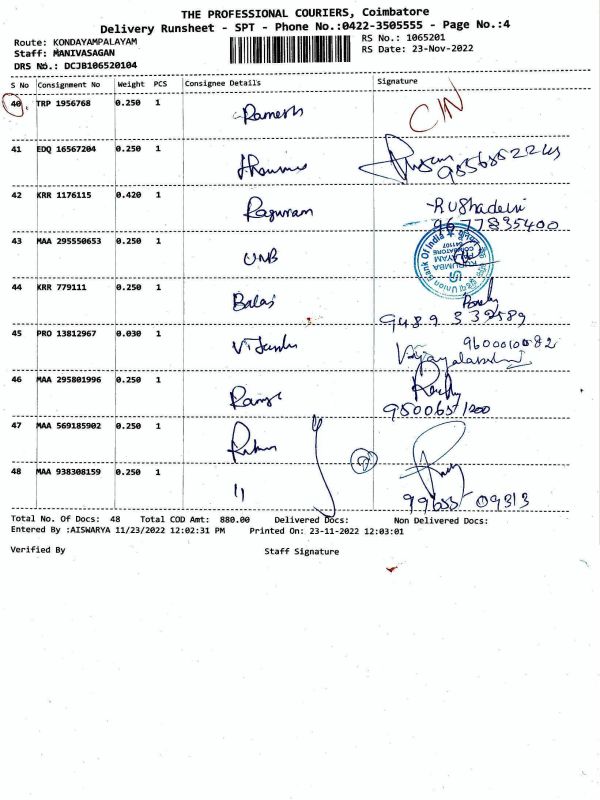 THE PROFESSIONAL COURIERS, Coimbatore
Delivery Runsheet - SPT - Phone No.:0422-3505555 - Page No.:4
Route: KONDAYAMPALAYAM
Staff: MANIVASAGAN
DRS No.: DCJB106520104
RS No.: 1065201
RS Date: 23-Nov-2022
S No Consignment No Weight PCS Consignee Details Signature
40 TRP 1956768 0.250 1 Ramesh CIN
41 EDQ 16567204 0.250 1
42 KRR 1176115 0.420 1 Raguram RUShadevi
9677835400
43 MAA 295550653 0.250 1 UNB
Union Bank Of India
44 KRR 779111 0.250 1 Balaji
9489 339589
45 PRO 13812967 0.030 1
9600010082
Vijayalakshmi
46 MAA 295801996 0.250 1
9500651200
47 MAA 569185902 0.250 1
48 MAA 938308159 0.250 1 11
99655 09313
Total No. Of Docs: 48 Total COD Amt: 880.00 Delivered Docs: Non Delivered Docs:
Entered By :AISWARYA 11/23/2022 12:02:31 PM Printed On: 23-11-2022 12:03:01
Verified By Staff Signature